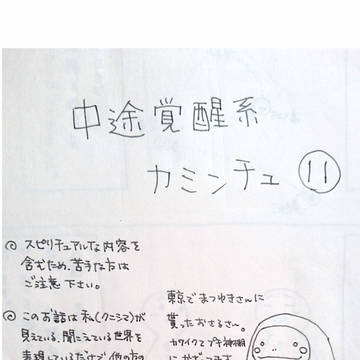 中途覚醒系
カミンチュ ⑪
◎ スピリチュアルな内容を
含むため、苦手な方は
ご注意 下さい。
◎ このお話は私(クニシマ)が
見えている、聞こえている世界を
表現しているだけで、他の方の
東京でまつゆきさんに
貰ったおさるさん。
カワイクてプチ神棚
にかざってます